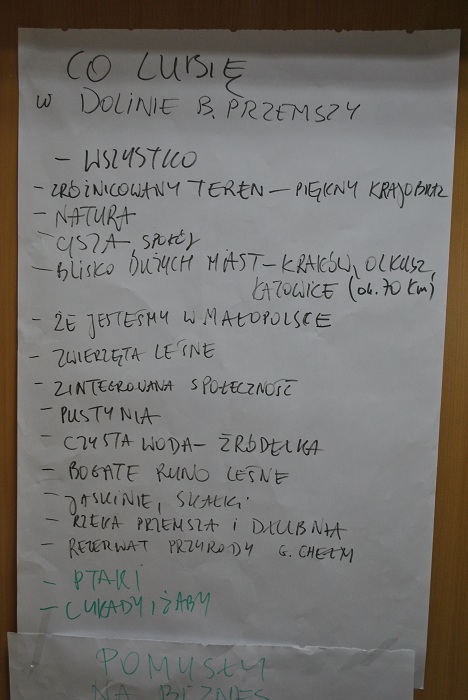 CO LUBIĘ
W DOLINIE B. PRZEMSZY
- WSZYSTKO
- ZRÓŻNICOWANY TEREN - PIĘKNY KRAJOBRAZ
- NATURA
- CISZA - SPOKÓJ
- BLISKO DUŻYCH MIAST - KRAKÓW, OLKUSZ,
KATOWICE (ok. 70 km)
- ŻE JESTEŚMY W MAŁOPOLSCE
- ZWIERZĘTA LEŚNE
- ZINTEGROWANA SPOŁECZNOŚĆ
- PUSTYNIA
- CZYSTA WODA - ŹRÓDEŁKA
- BOGATE RUNO LEŚNE
- JASKINIE, SKAŁKI
- RZEKA PRZEMSZA i DŁUBNIA
- REZERWAT PRZYRODY G. CHEŁMY
- PTAKI
- CYKADY i ŻABY
POMYSŁY
NA BIZNES